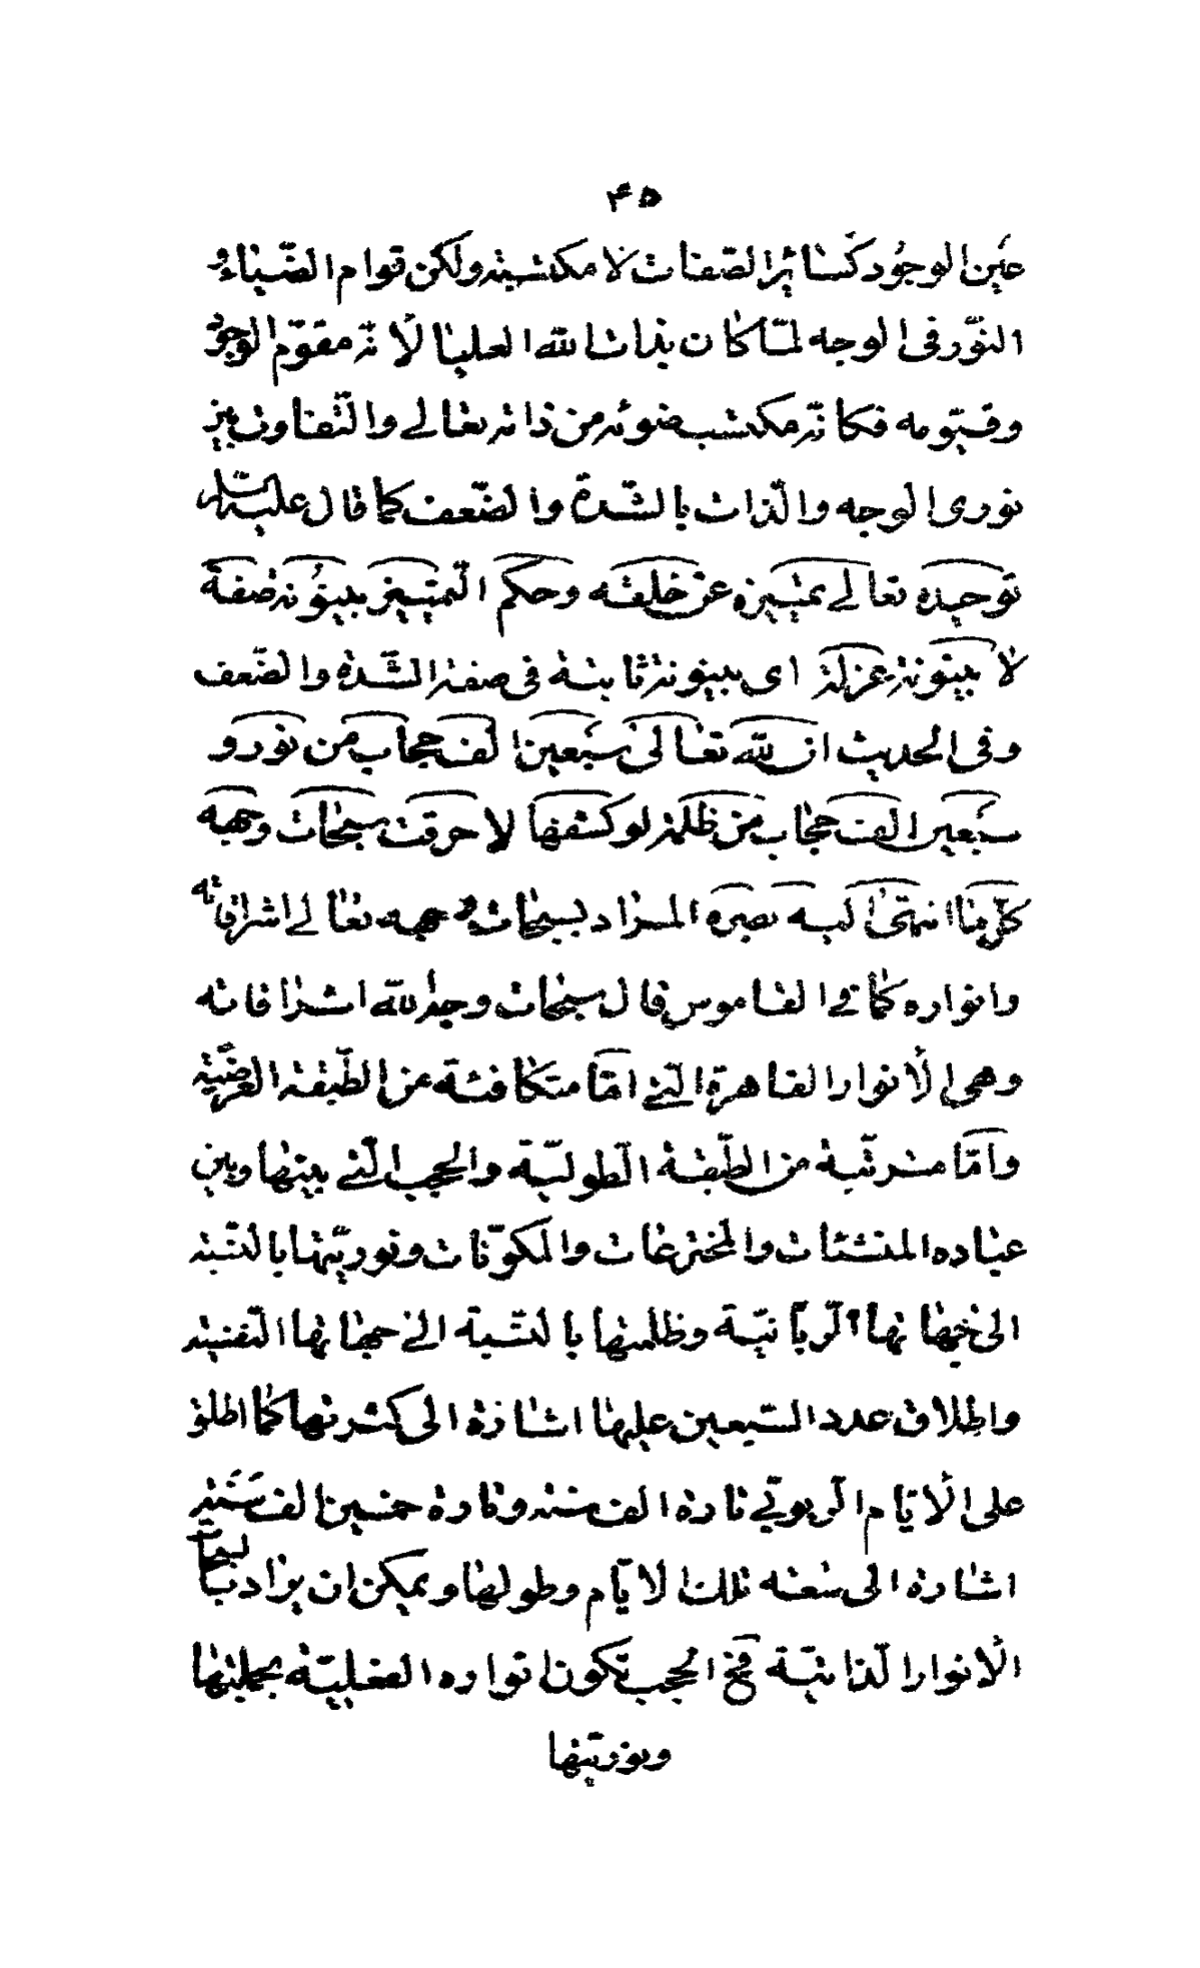 ۴۵
عين الوجود كسائر الصفات لا مكتسبة ولكن قوام الضياء و
النّور فى الوجه لمّا كان بذات الله العليا لأنّه مقوّم الوجود
وقيّومه فكانّه مكتسب ضوئه من ذاته تعالى والتّفاوت بين
نورى الوجه والذات بالشّدة والضّعف كما قال عليه السّلام
توحيده تعالى تمييزه عن خلقه وحكم التّمييز بينونة صفة
لا بينونة عزلة اى بينونة ثابتة فى صفة الشّدة والضّعف
وفى الحديث انّ لله تعالى سبعين الف حجاب من نور و
سبعين الف حجاب من ظلمة لو كشفها لاحرقت سبحات وجهه
كلّ ما انتهى اليه بصره المراد بسبحات وجهه تعالى اشراقاته
وانواره كما فى القاموس قال سبحات وجه الله اشراقاته
وهى الأنوار القاهرة الّتى امّا متكافئة من الطّبقة العرضيّة
وامّا مترتّبة من الطّبقة الطوليّة والحجب الّتى بينها وبين
عباده المنشئات والمخترعات والمكوّنات ونوريّتها بالنّسبة
الى جهاتها الربّانيّة وظلمتها بالنّسبة الى جهاتها النّفسيّة
واطلاق عدد السّبعين عليها اشارة الى كثرتها كما اطلق
على الأيّام الربوبى تارة الف سنة وتارة خمسين الف سنة
اشارة الى سعة تلك الايّام وطولها ويمكن ان يراد بسبحات
الأنوار الذاتيّة فح الحجب تكون انواره العقليّة بجملتها
ونوريّتها